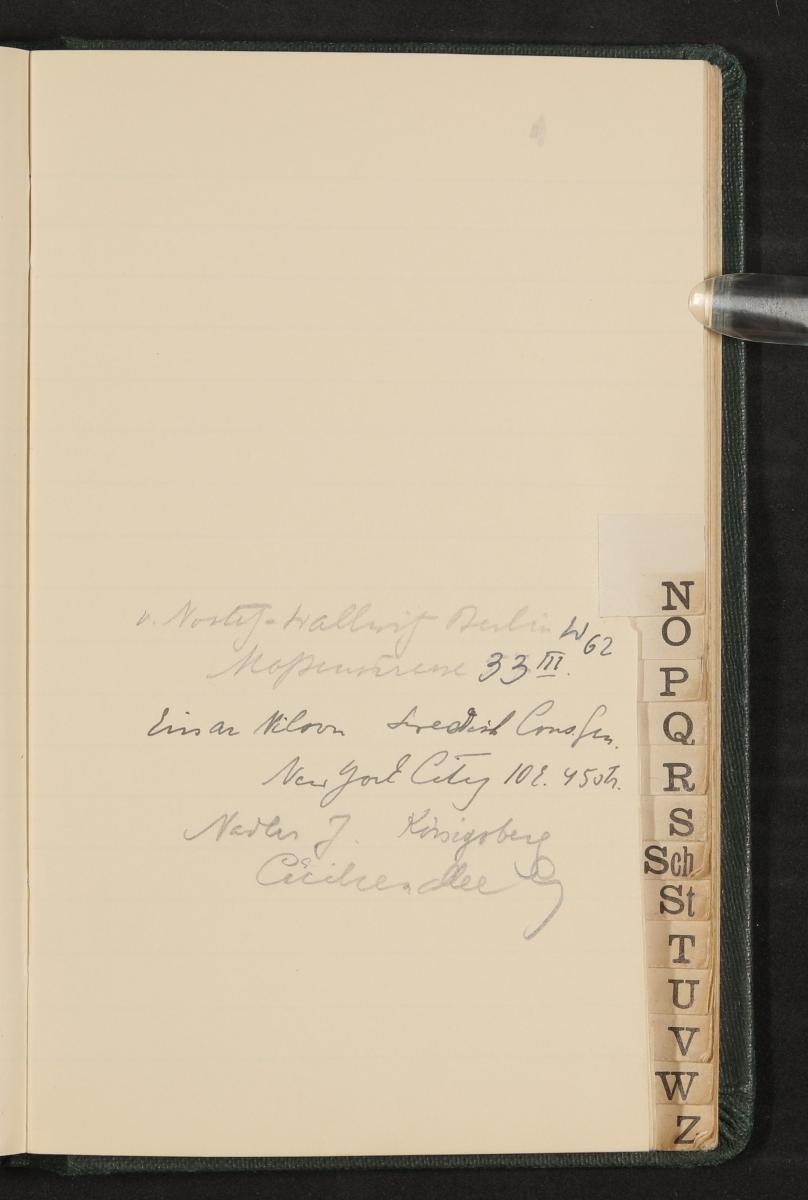 v. Nostiz-Wallwitz Berlin W 62
Maßenstrasse 33 III.
Einar Nilson Swedish Cons. Gen.
New York City 10 E. 45 str.
Nadler J. Königsberg
Cäcilienallee
N
O
P
Q
R
S
Sch
St
T
U
V
W
Z